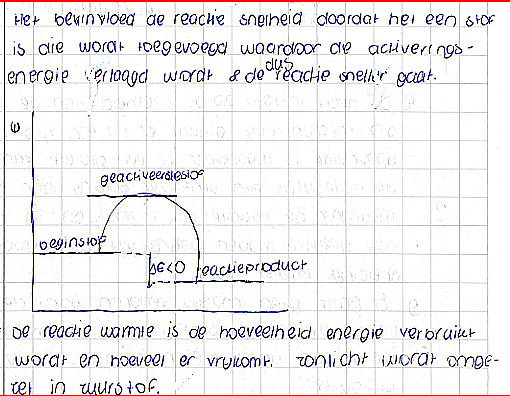 Het beïnvloed de reactie snelheid doordat het een stof
is die wordt toegevoegd waardoor de activerings-
energie verlaagd wordt & de dus reactie sneller gaat.
geactiveerdestof
beginstof
ΔE<0 reactieproduct
De reactie warmte is de hoeveelheid energie verbruikt
wordt en hoeveel er vrijkomt. zonlicht wordt omge-
zet in zuurstof.